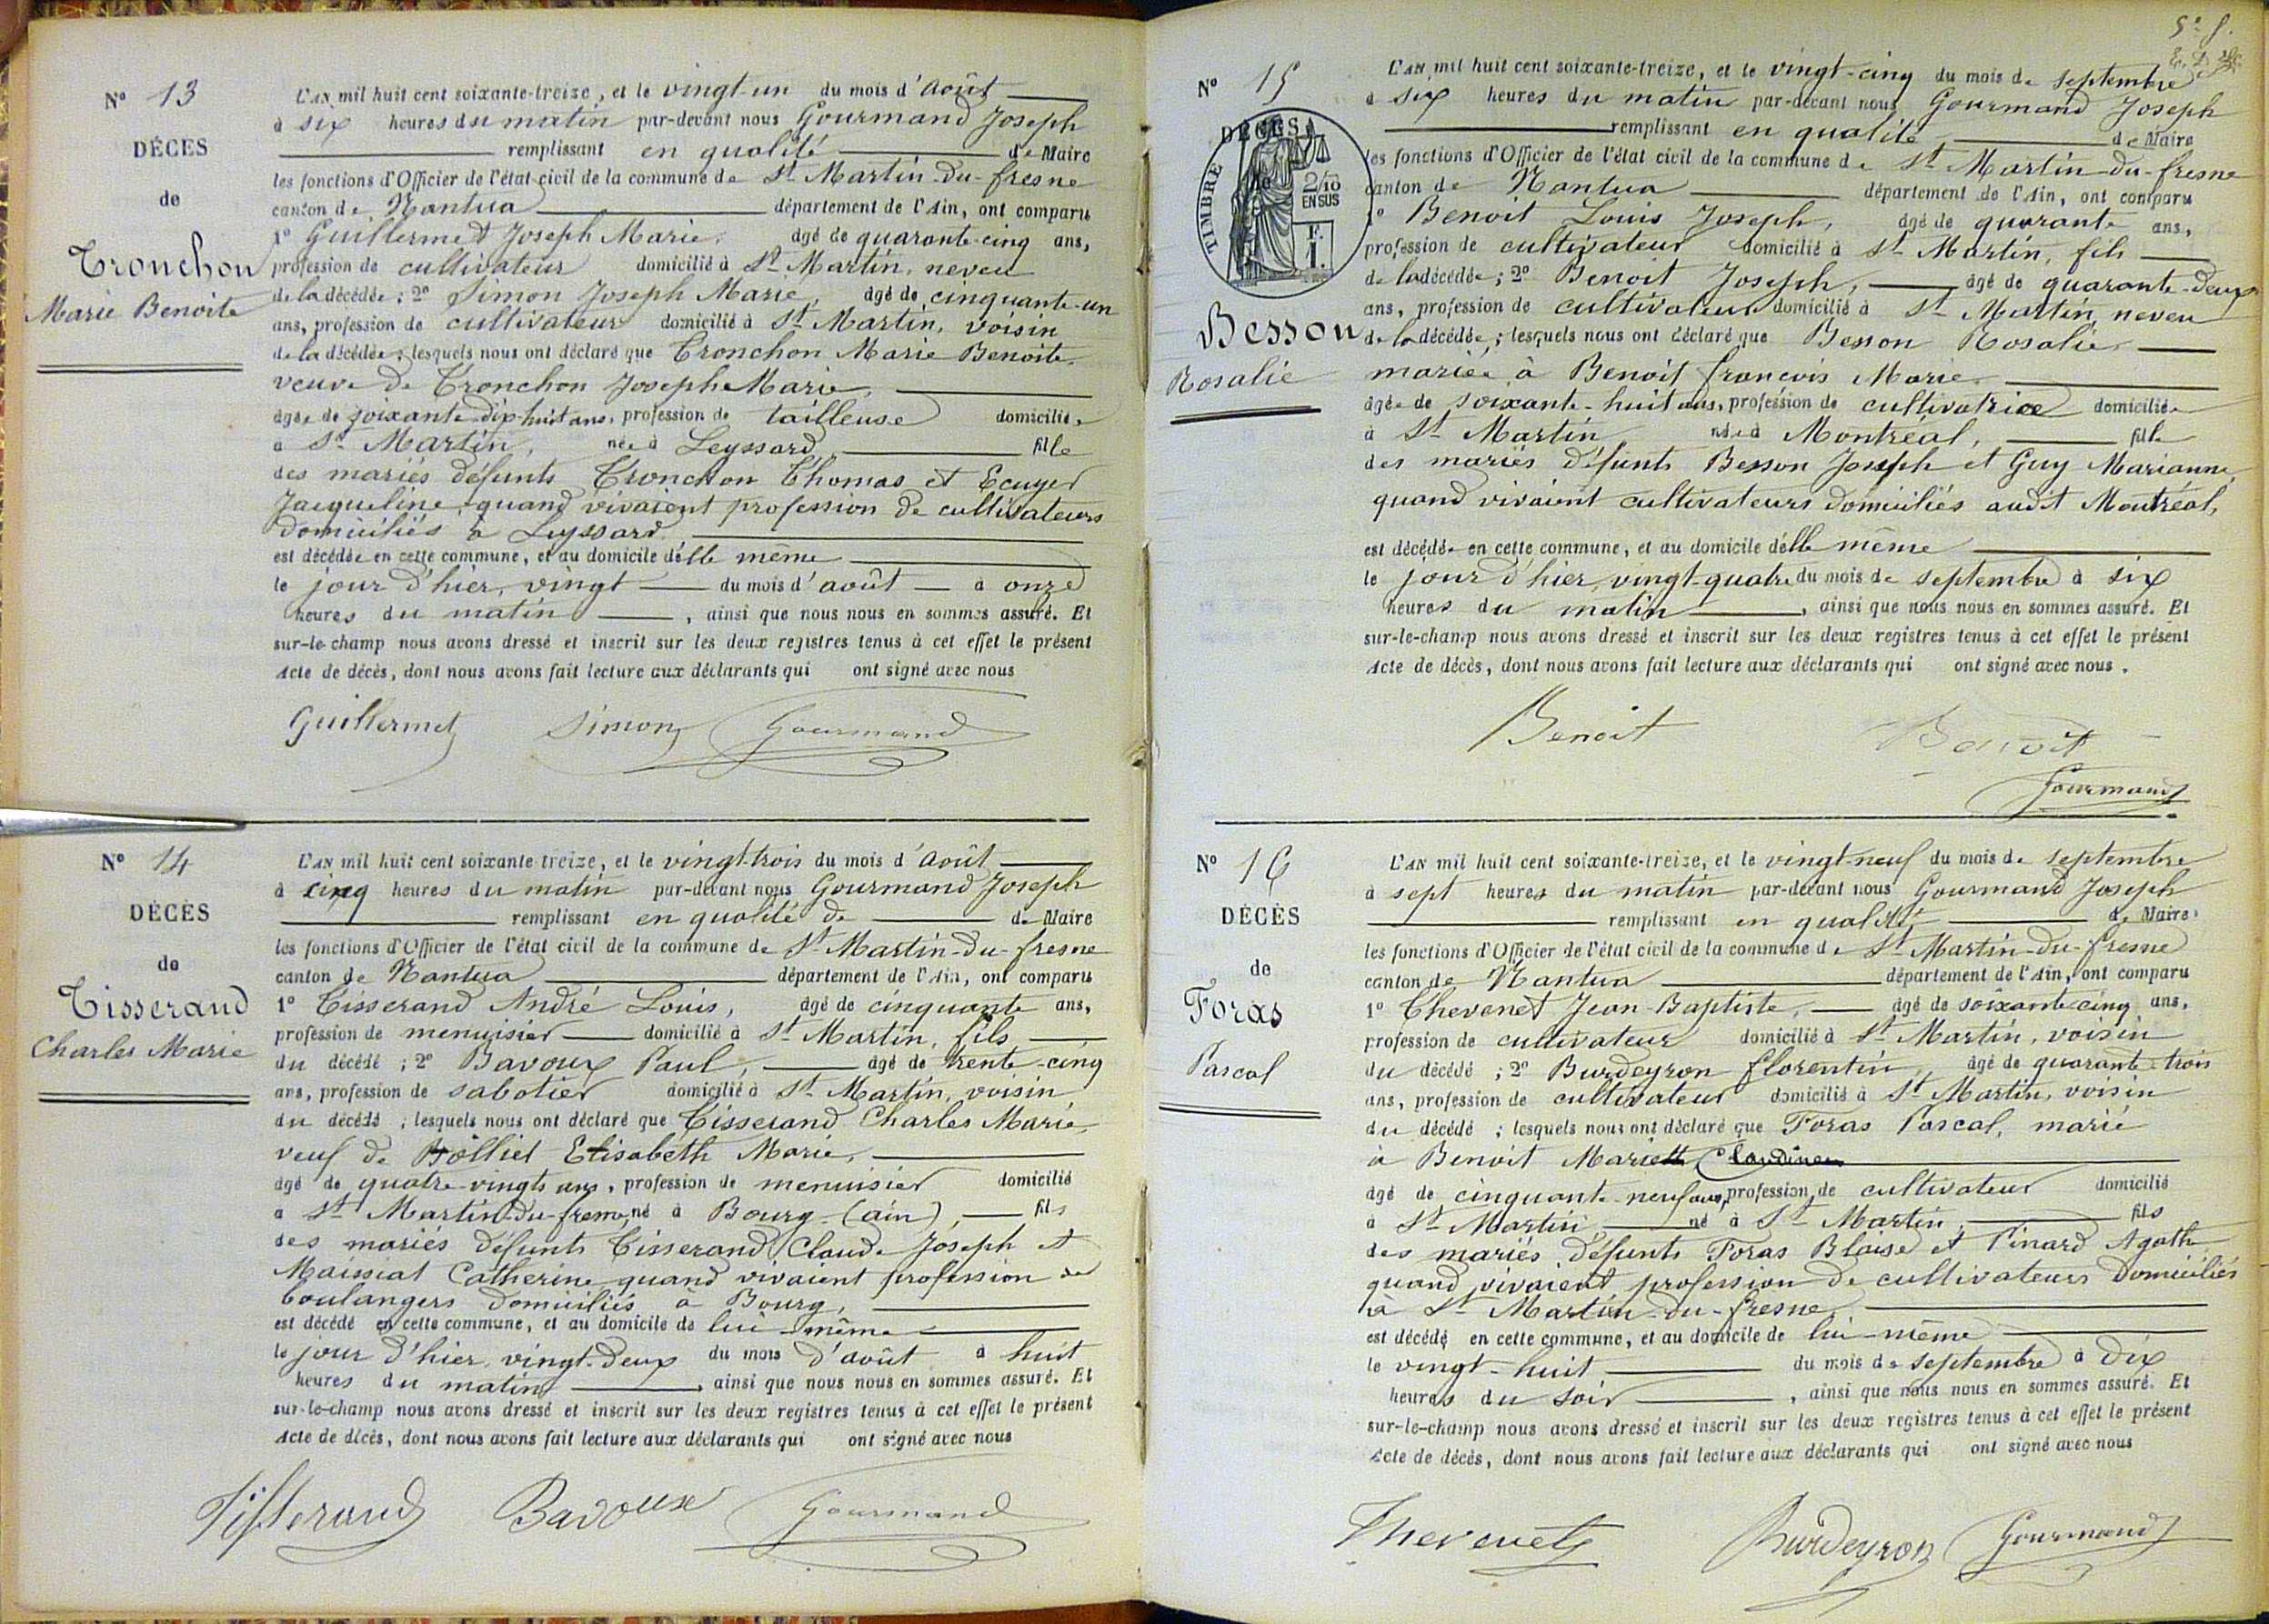 Nº 13
DÉCES
de
Tronchon
Marie Benoite
L'AN mil huit cent soixante-treize, et le vingt-un du mois d'Août
à six heures du matin par-devant nous Gourmand Joseph
remplissant en qualité de Maire
les fonctions d'Officier de l'état civil de la commune de St Martin-du-fresne
canton de Nantua département de l'Ain, ont comparu
1º Guillermet Joseph Marie, âgé de quarante-cinq ans,
profession de cultivateur domicilié à St Martin, neveu
de la décédée ; 2º Simon Joseph Marie, âgé de cinquante-un
ans, profession de cultivateur domicilié à St Martin, voisin
de la décédée ; lesquels nous ont déclaré que Tronchon Marie Benoite,
veuve de Tronchon Joseph Marie,
âgée de soixante-dix-huit ans, profession de tailleuse domiciliée
à St Martin, née à Leyssard, fille
des mariés défunts Tronchon Thomas et Ecuyer
Jacqueline, quand vivaient profession de cultivateurs
domiciliés à Leyssard.
est décédée en cette commune, et au domicile d'elle même
le jour d'hier, vingt du mois d'août à onze
heures du matin, ainsi que nous nous en sommes assuré. Et
sur-le-champ nous avons dressé et inscrit sur les deux registres tenus à cet effet le présent
Acte de décès, dont nous avons fait lecture aux déclarants qui ont signé avec nous
Guillermet Simon Gourmand
Nº 14
DÉCÈS
de
Tisserand
Charles Marie
L'AN mil huit cent soixante-treize, et le vingt-trois du mois d'Août
à cinq heures du matin par-devant nous Gourmand Joseph
remplissant en qualité de de Maire
les fonctions d'Officier de l'état civil de la commune de St Martin-du-fresne
canton de Nantua département de l'Ain, ont comparu
1º Tisserand André Louis, âgé de cinquante ans,
profession de menuisier domicilié à St Martin, fils
du décédé ; 2º Bavoux Paul, âgé de trente-cinq
ans, profession de sabotier domicilié à St Martin, voisin
du décédé ; lesquels nous ont déclaré que Tisserand Charles Marie,
veuf de Bolliet Elisabeth Marie,
âgé de quatre-vingts ans, profession de menuisier domicilié
à St Martin-du-fresne, né à Bourg (ain), fils
des mariés défunts Tisserand Claude Joseph et
Maissiat Catherine quand vivaient profession de
boulangers domiciliés à Bourg,
est décédé en cette commune, et au domicile de lui-même
le jour d'hier, vingt-deux du mois d'août à huit
heures du matin, ainsi que nous nous en sommes assuré. Et
sur-le-champ nous avons dressé et inscrit sur les deux registres tenus à cet effet le présent
Acte de décès, dont nous avons fait lecture aux déclarants qui ont signé avec nous
Tisserand Bavoux Gourmand
5e f.
Nº 15
DÉCÈS
de
TIMBRE
2/10
EN SUS
F.
1.
Besson
Rosalie
L'AN mil huit cent soixante-treize, et le vingt-cinq du mois de septembre
à six heures du matin par-devant nous Gourmand Joseph
remplissant en qualité de Maire
les fonctions d'Officier de l'état civil de la commune de St Martin-du-fresne
canton de Nantua département de l'Ain, ont comparu
1º Benoit Louis Joseph, âgé de quarante ans,
profession de cultivateur domicilié à St Martin, fils
de la décédée ; 2º Benoit Joseph, âgé de quarante-deux
ans, profession de cultivateur domicilié à St Martin, neveu
de la décédée ; lesquels nous ont déclaré que Besson Rosalie
mariée à Benoit françois Marie
âgée de soixante-huit ans, profession de cultivatrice domiciliée
à St Martin née à Montréal, fille
des mariés défunts Besson Joseph et Guy Marianne,
quand vivaient cultivateurs domiciliés audit Montréal,
est décédée en cette commune, et au domicile d'elle même
le jour d'hier, vingt-quatre du mois de septembre à six
heures du matin, ainsi que nous nous en sommes assuré. Et
sur-le-champ nous avons dressé et inscrit sur les deux registres tenus à cet effet le présent
Acte de décès, dont nous avons fait lecture aux déclarants qui ont signé avec nous.
Benoit Benoit
Gourmand
Nº 16
DÉCÈS
de
Foras
Pascal
L'AN mil huit cent soixante-treize, et le vingt-neuf du mois de septembre
à sept heures du matin par-devant nous Gourmand Joseph
remplissant en qualité de Maire
les fonctions d'Officier de l'état civil de la commune de St Martin-du-fresne
canton de Nantua département de l'Ain, ont comparu
1º Thevenet Jean-Baptiste, âgé de soixante-cinq ans,
profession de cultivateur domicilié à St Martin, voisin
du décédé ; 2º Burdeyron florentin, âgé de quarante-trois
ans, profession de cultivateur domicilié à St Martin, voisin
du décédé ; lesquels nous ont déclaré que Foras Pascal, marié
à Benoit Marie Claudine
âgé de cinquante-neuf ans, profession de cultivateur domicilié
à St Martin, né à St Martin, fils
des mariés défunts Foras Blaise et Pinard Agathe
quand vivaient profession de cultivateurs domiciliés
à St Martin-du-fresne,
est décédé en cette commune, et au domicile de lui-même
le vingt-huit du mois de septembre à dix
heures du soir, ainsi que nous nous en sommes assuré. Et
sur-le-champ nous avons dressé et inscrit sur les deux registres tenus à cet effet le présent
Acte de décès, dont nous avons fait lecture aux déclarants qui ont signé avec nous
Thevenet Burdeyron Gourmand